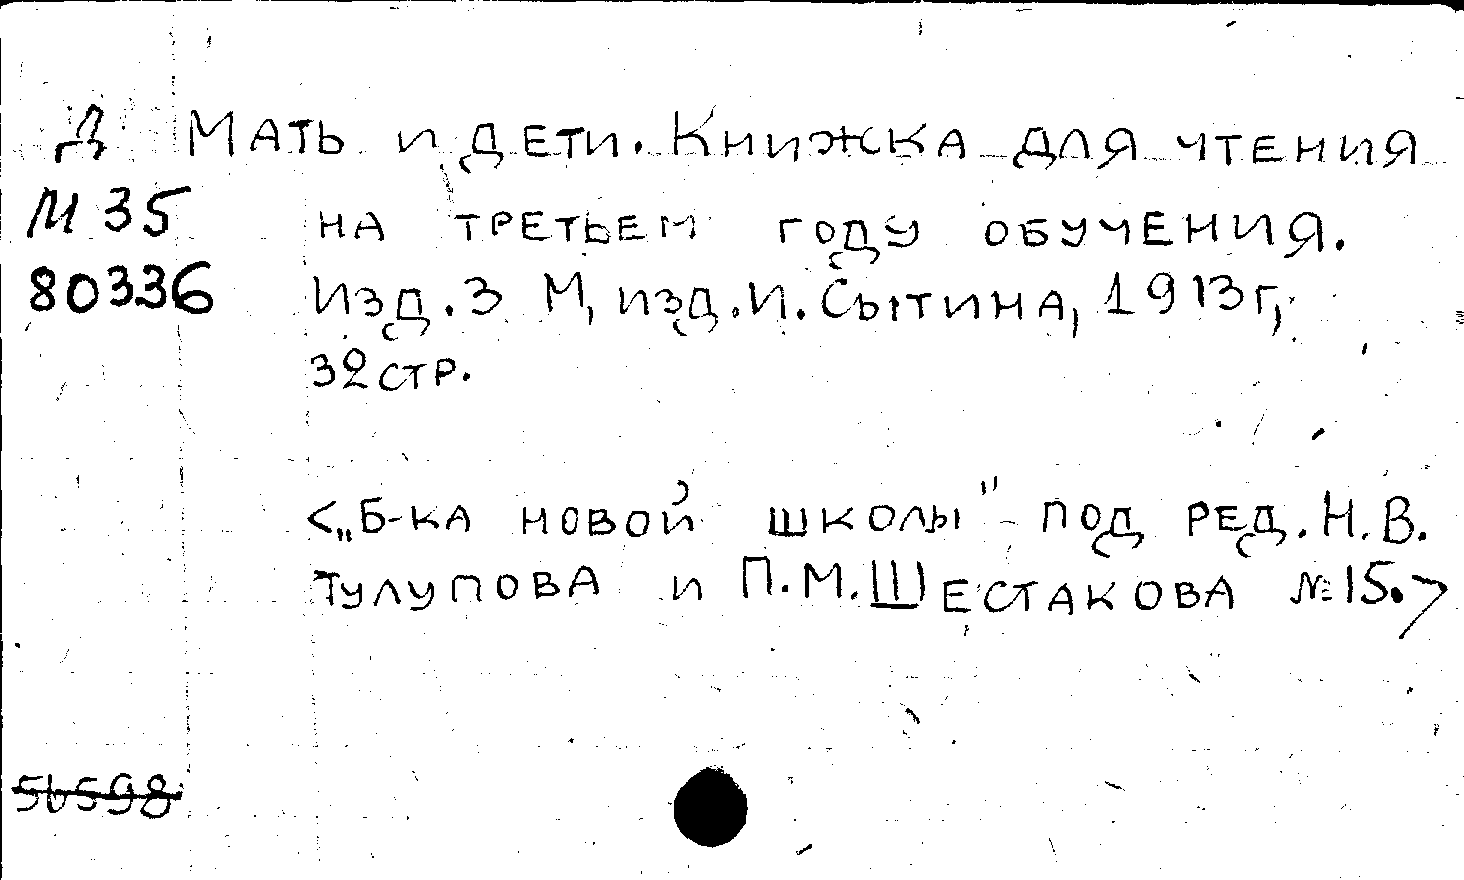 Д Мать и дети. Книжка для чтения
М 35 на третьем году обучения.
80336 Изд. 3 М, изд. И. Сытина, 1913 г,
32 стр.
<„Б-ка новой школы" под ред. Н. В.
Тулупова и П. М. Шестакова № 15.>